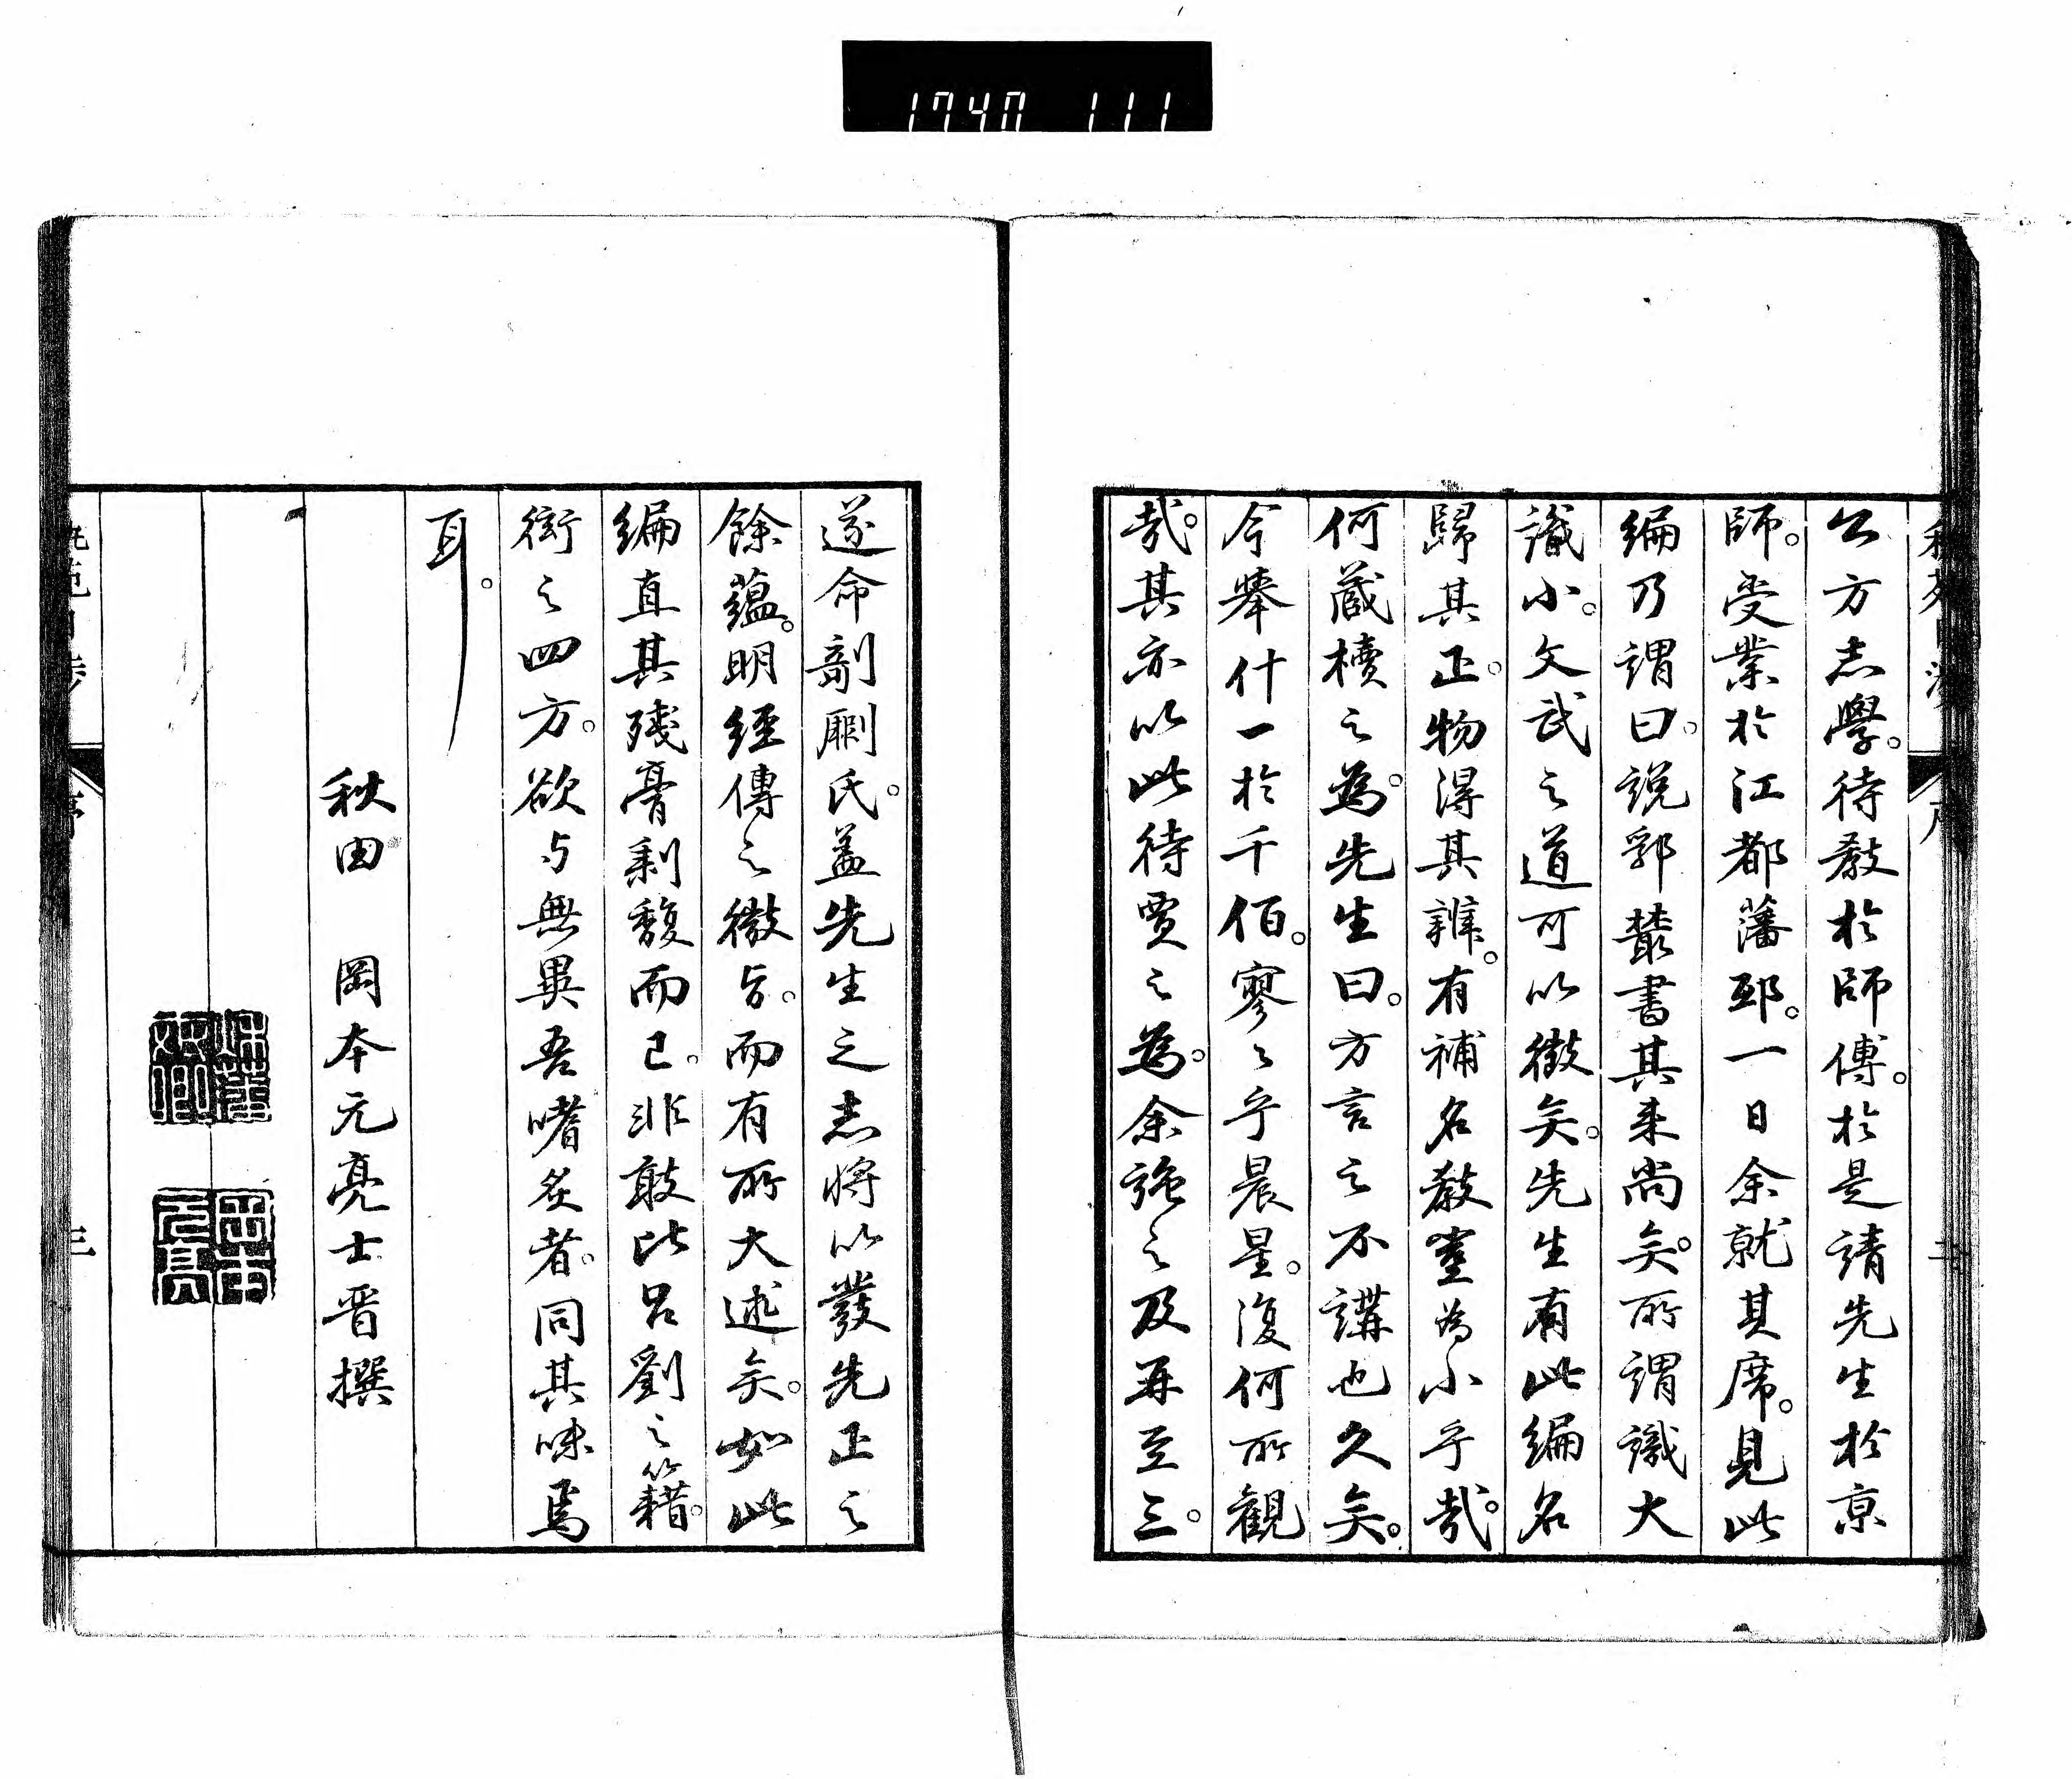 1740 111
公方志學。待教於師傅。於是請先生於京
師。受業於江都藩邸。一日余就其席。見此
編乃謂曰。説郛叢書其来尚矣。所謂識大
識小。文武之道可以徴矣。先生有此編名
歸其正。物得其辨。有補名教豈為小乎哉。
何蔵櫝之為。先生曰。方言之不講也久矣。
今舉什一於千佰。寥〻乎晨星。復何所観
哉。其亦以此待賈之為。余強之及再至三。
遂命剞劂氏。盖先生之志将以發先正之
餘蘊。明經傳之微旨。而有所大述矣。如此
編直其残膏剰馥而已。非敢比呂劉之籍。
衒之四方。欲与無異吾嗜炙者。同其味焉
耳。
秋田 岡本元亮士晋撰
岡本元亮
序
三